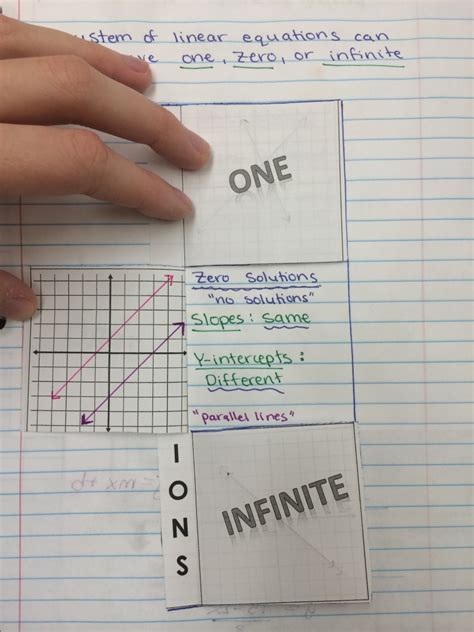 system of linear equations can
one, zero, or infinite
ONE
Zero Solutions
"no solutions"
Slopes: Same
Y-intercepts:
Different
"parallel lines"
I
O
N
S
INFINITE